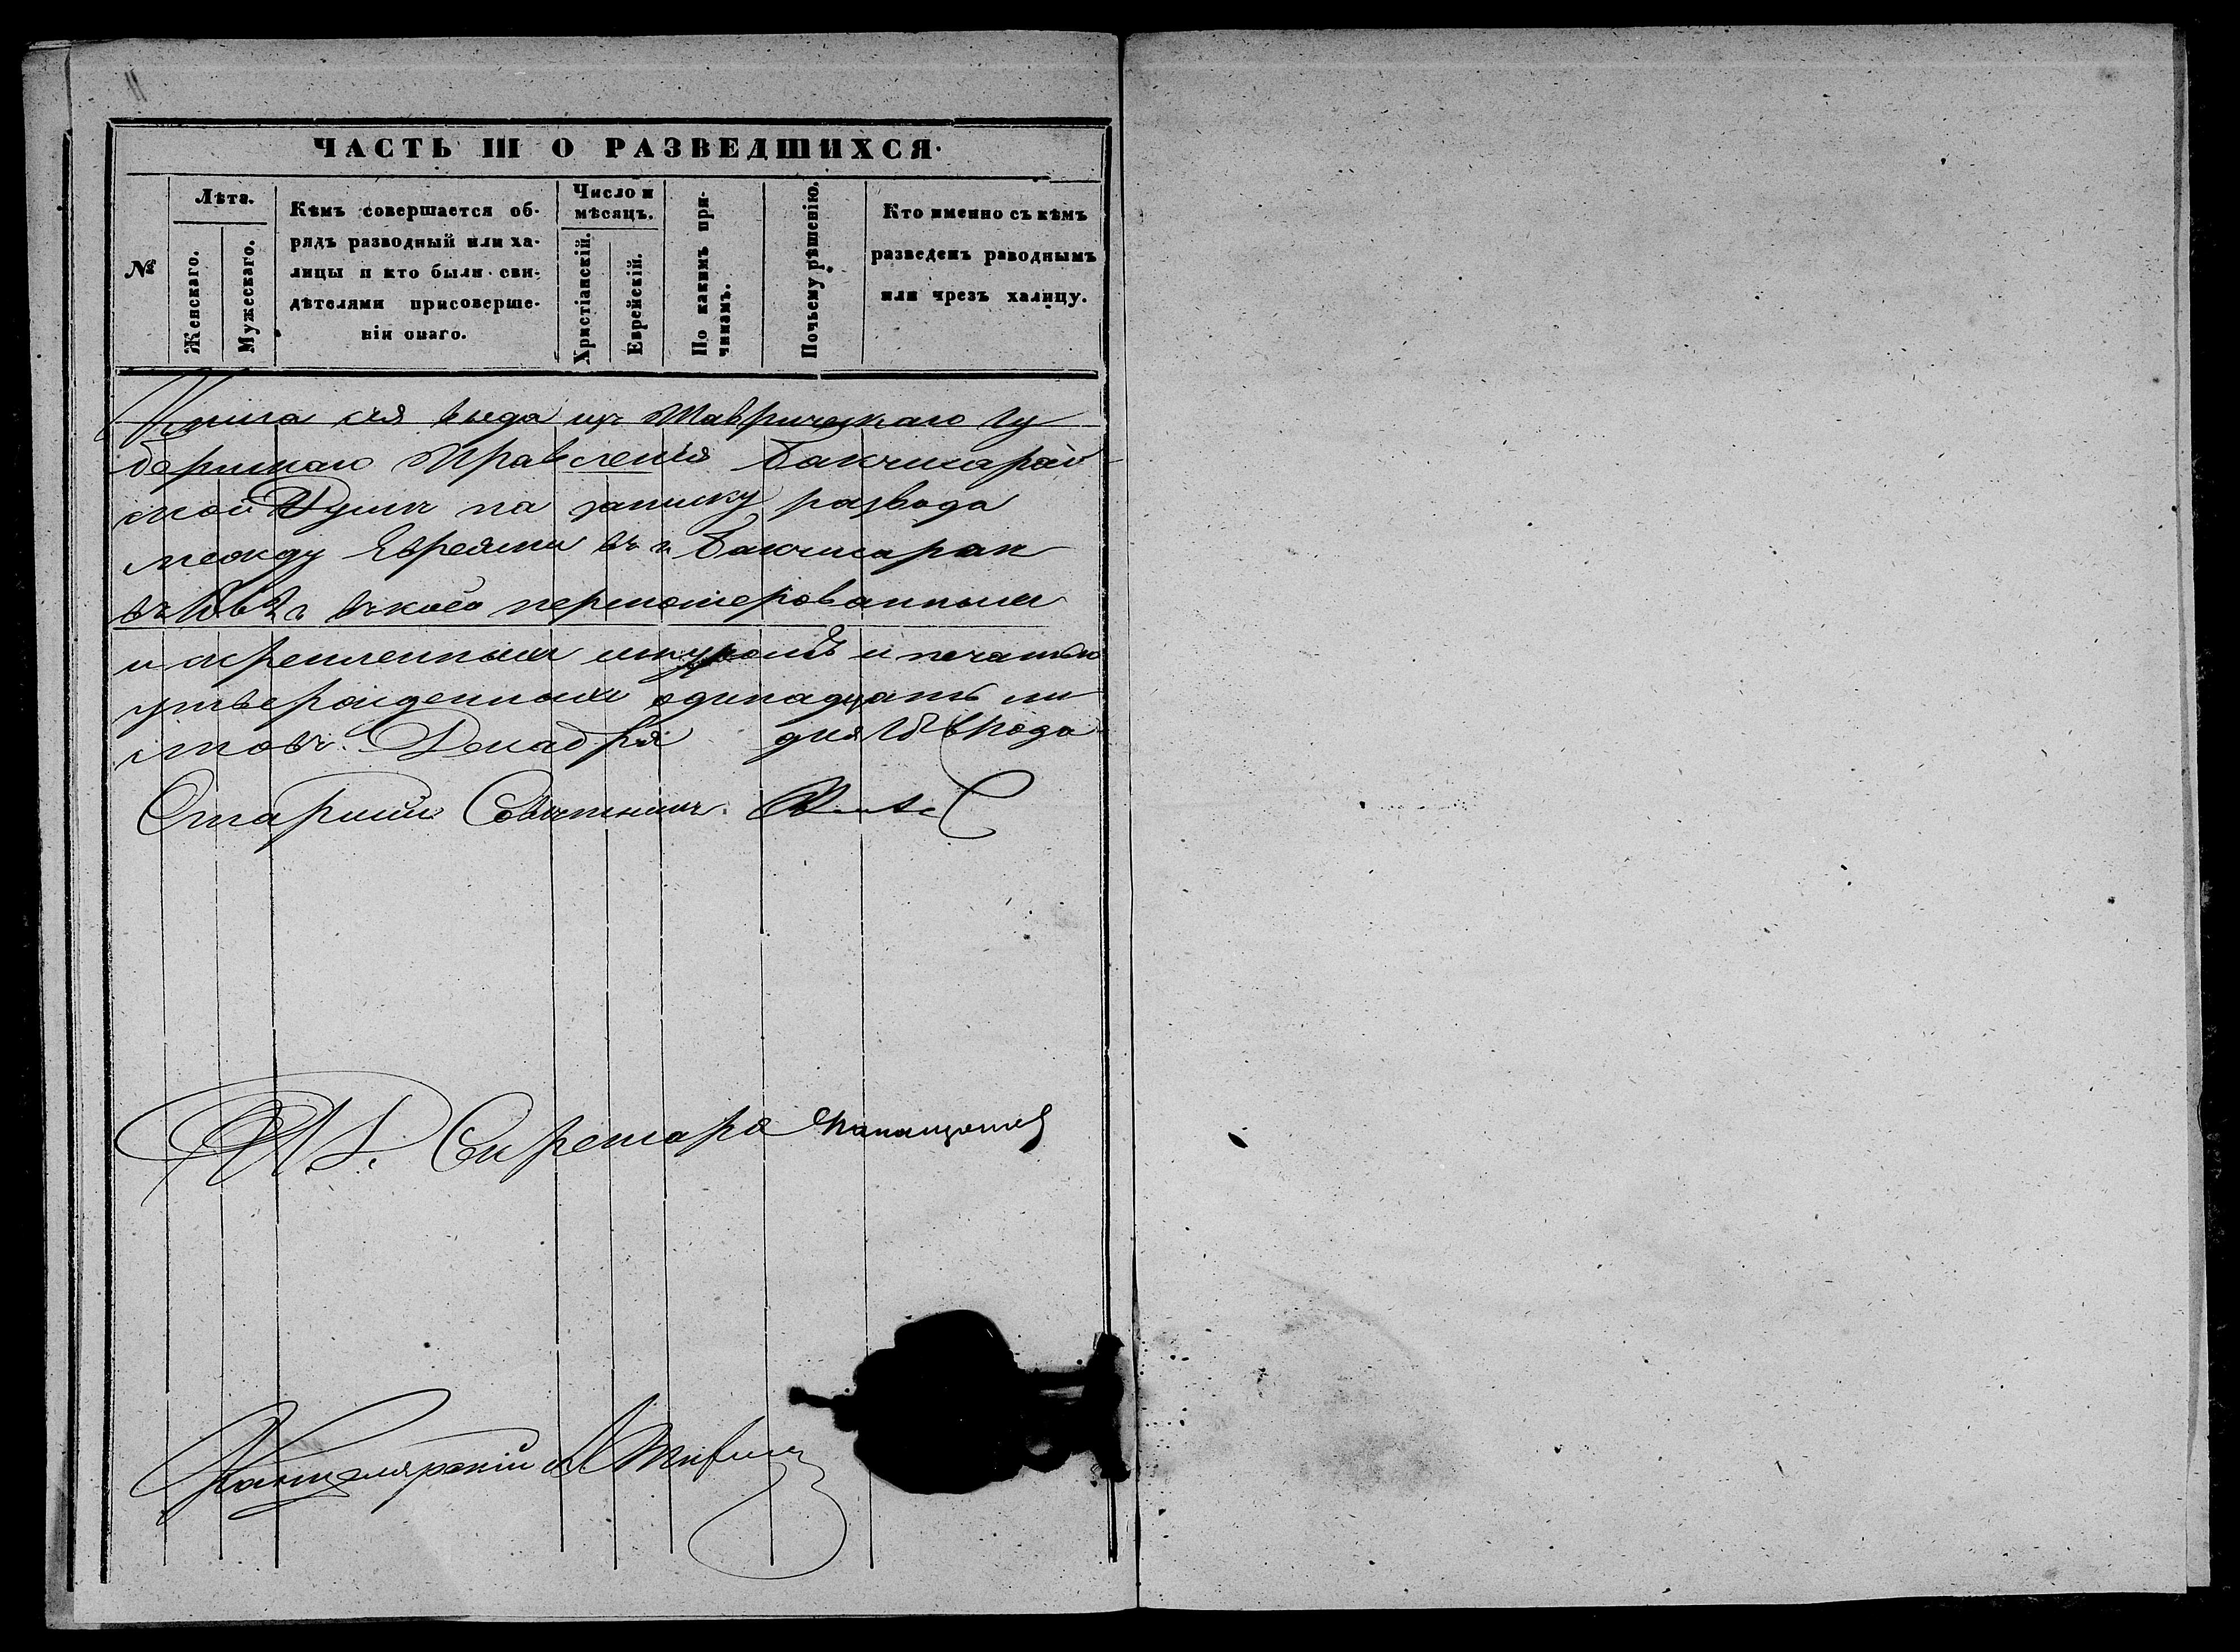 11
ЧАСТЬ III О РАЗВЕДШИХСЯ.
№
Лѣта.
Женскаго.
Мужескаго.
Кѣмъ совершается об-
рядъ разводный или ха-
лицы и кто были сви-
дѣтелями присоверше-
нія онаго.
Число и
мѣсяцъ.
Христіанскій.
Еврейскій.
По какимъ при-
чинамъ.
Почьему рѣшенію.
Кто именно съ кѣмъ
разведенъ раводнымъ
или чрезъ халицу.
Книга сія выда изъ Таврическаго Гу
бернскаго Правленія Бакчисарай
ской Думѣ на записку развода
между Евреями въ г. Бакчисараѣ
въ въ коей перномерованныхъ
и скрепленныхъ шнуромъ и печатью
утвержденныхъ одинадцать ли
стовъ. Декабря дня года
Старшій Совѣтникъ
И. Д. Секретаря
Канцелярскій